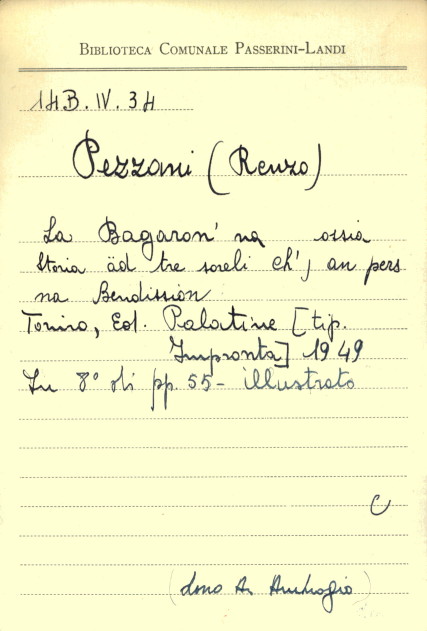 BIBLIOTECA COMUNALE PASSERINI-LANDI
14B.IV.34
Pezzani (Renzo)
La Bagaron' na ossia
Storia äd tre soreli ch'j an pers
na Bendissiòn
Torino, Ed. Palatine [tip.
Impronta] 1949
In 8° di pp. 55 - illustrato
C
(dono A. Ambrogio)